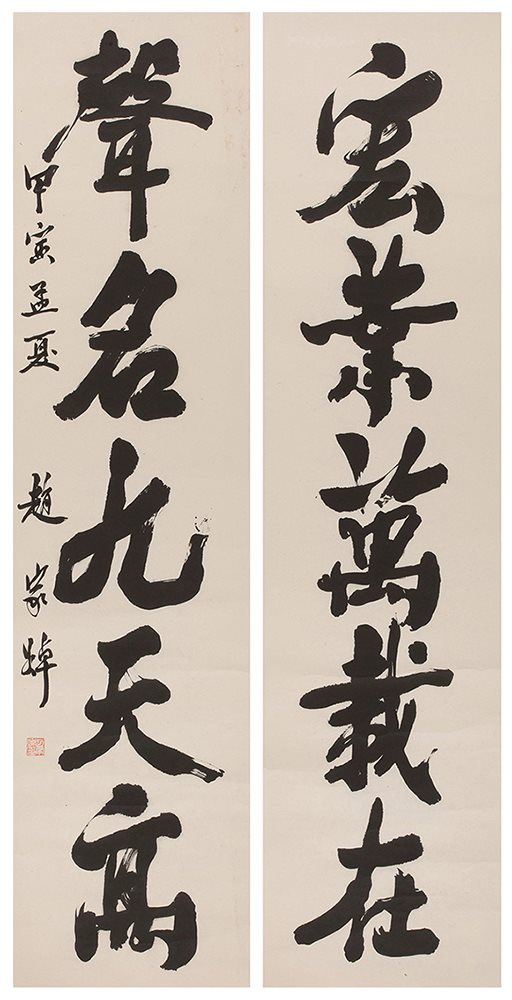 宏業萬載在
聲名九天高
甲寅孟夏
趙家焯